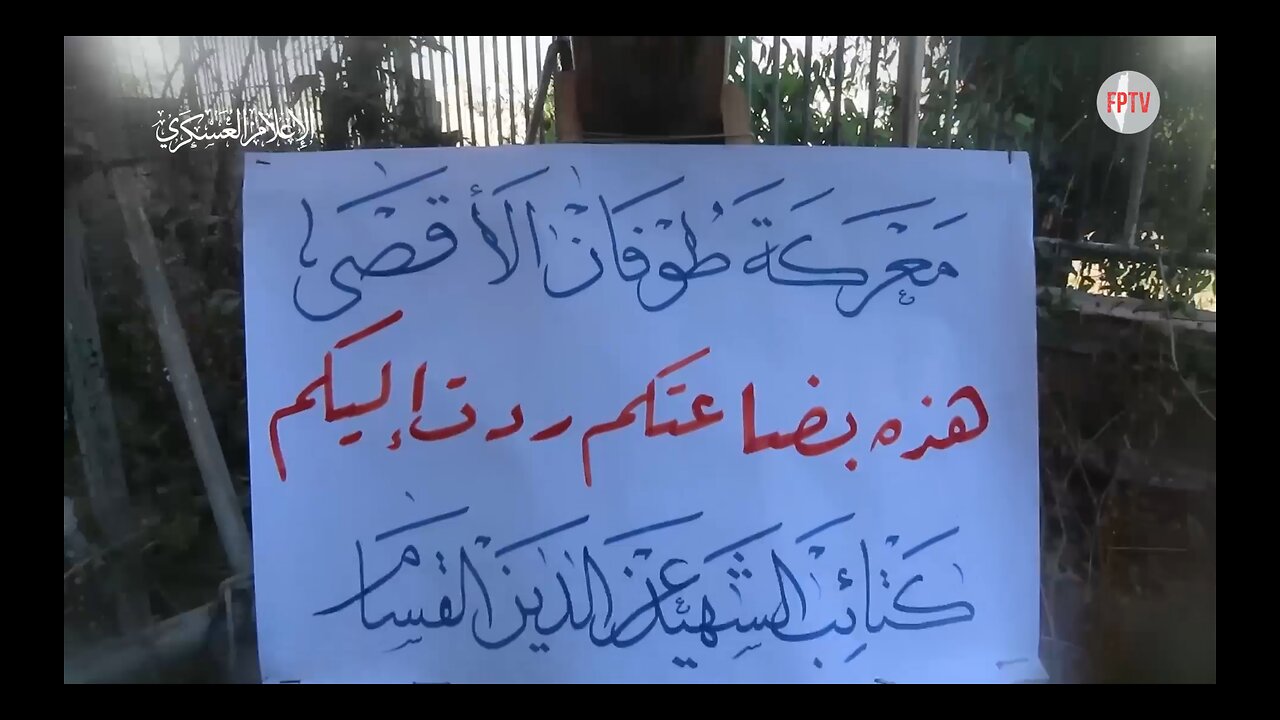 الإعلام العسكري
FPTV
معركة طوفان الأقصى
هذه بضاعتكم ردت إليكم
كتائب الشهيد عز الدين القسام